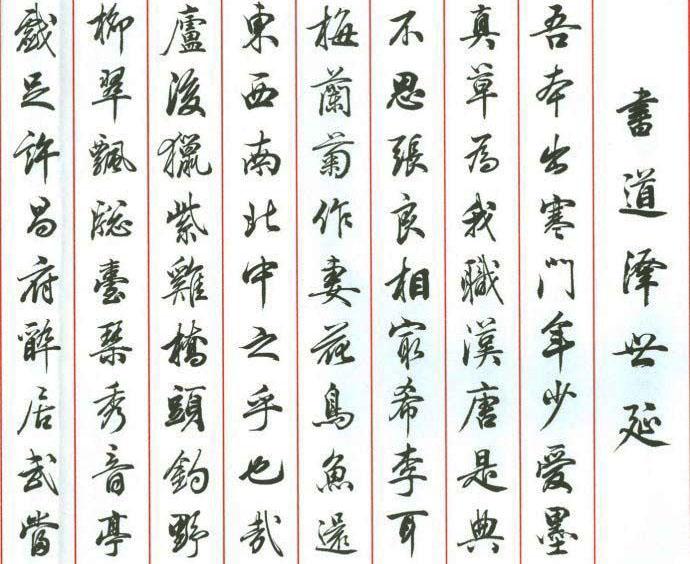 書道澤世延
吾本出寒門年少愛墨
真草為我職漢唐是典
不思張良相希李耳
梅蘭菊作妻花鳥魚還
東西南北中之乎也哉
廬獵紫雞橋頭釣野
柳翠飄臺琴秀音亭
戲足許昌府醉居武當